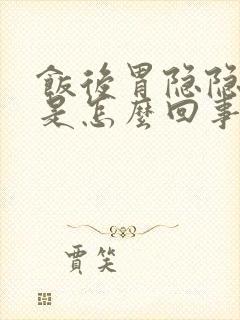 飯後胃隐隐
是怎麼回事
賈笑